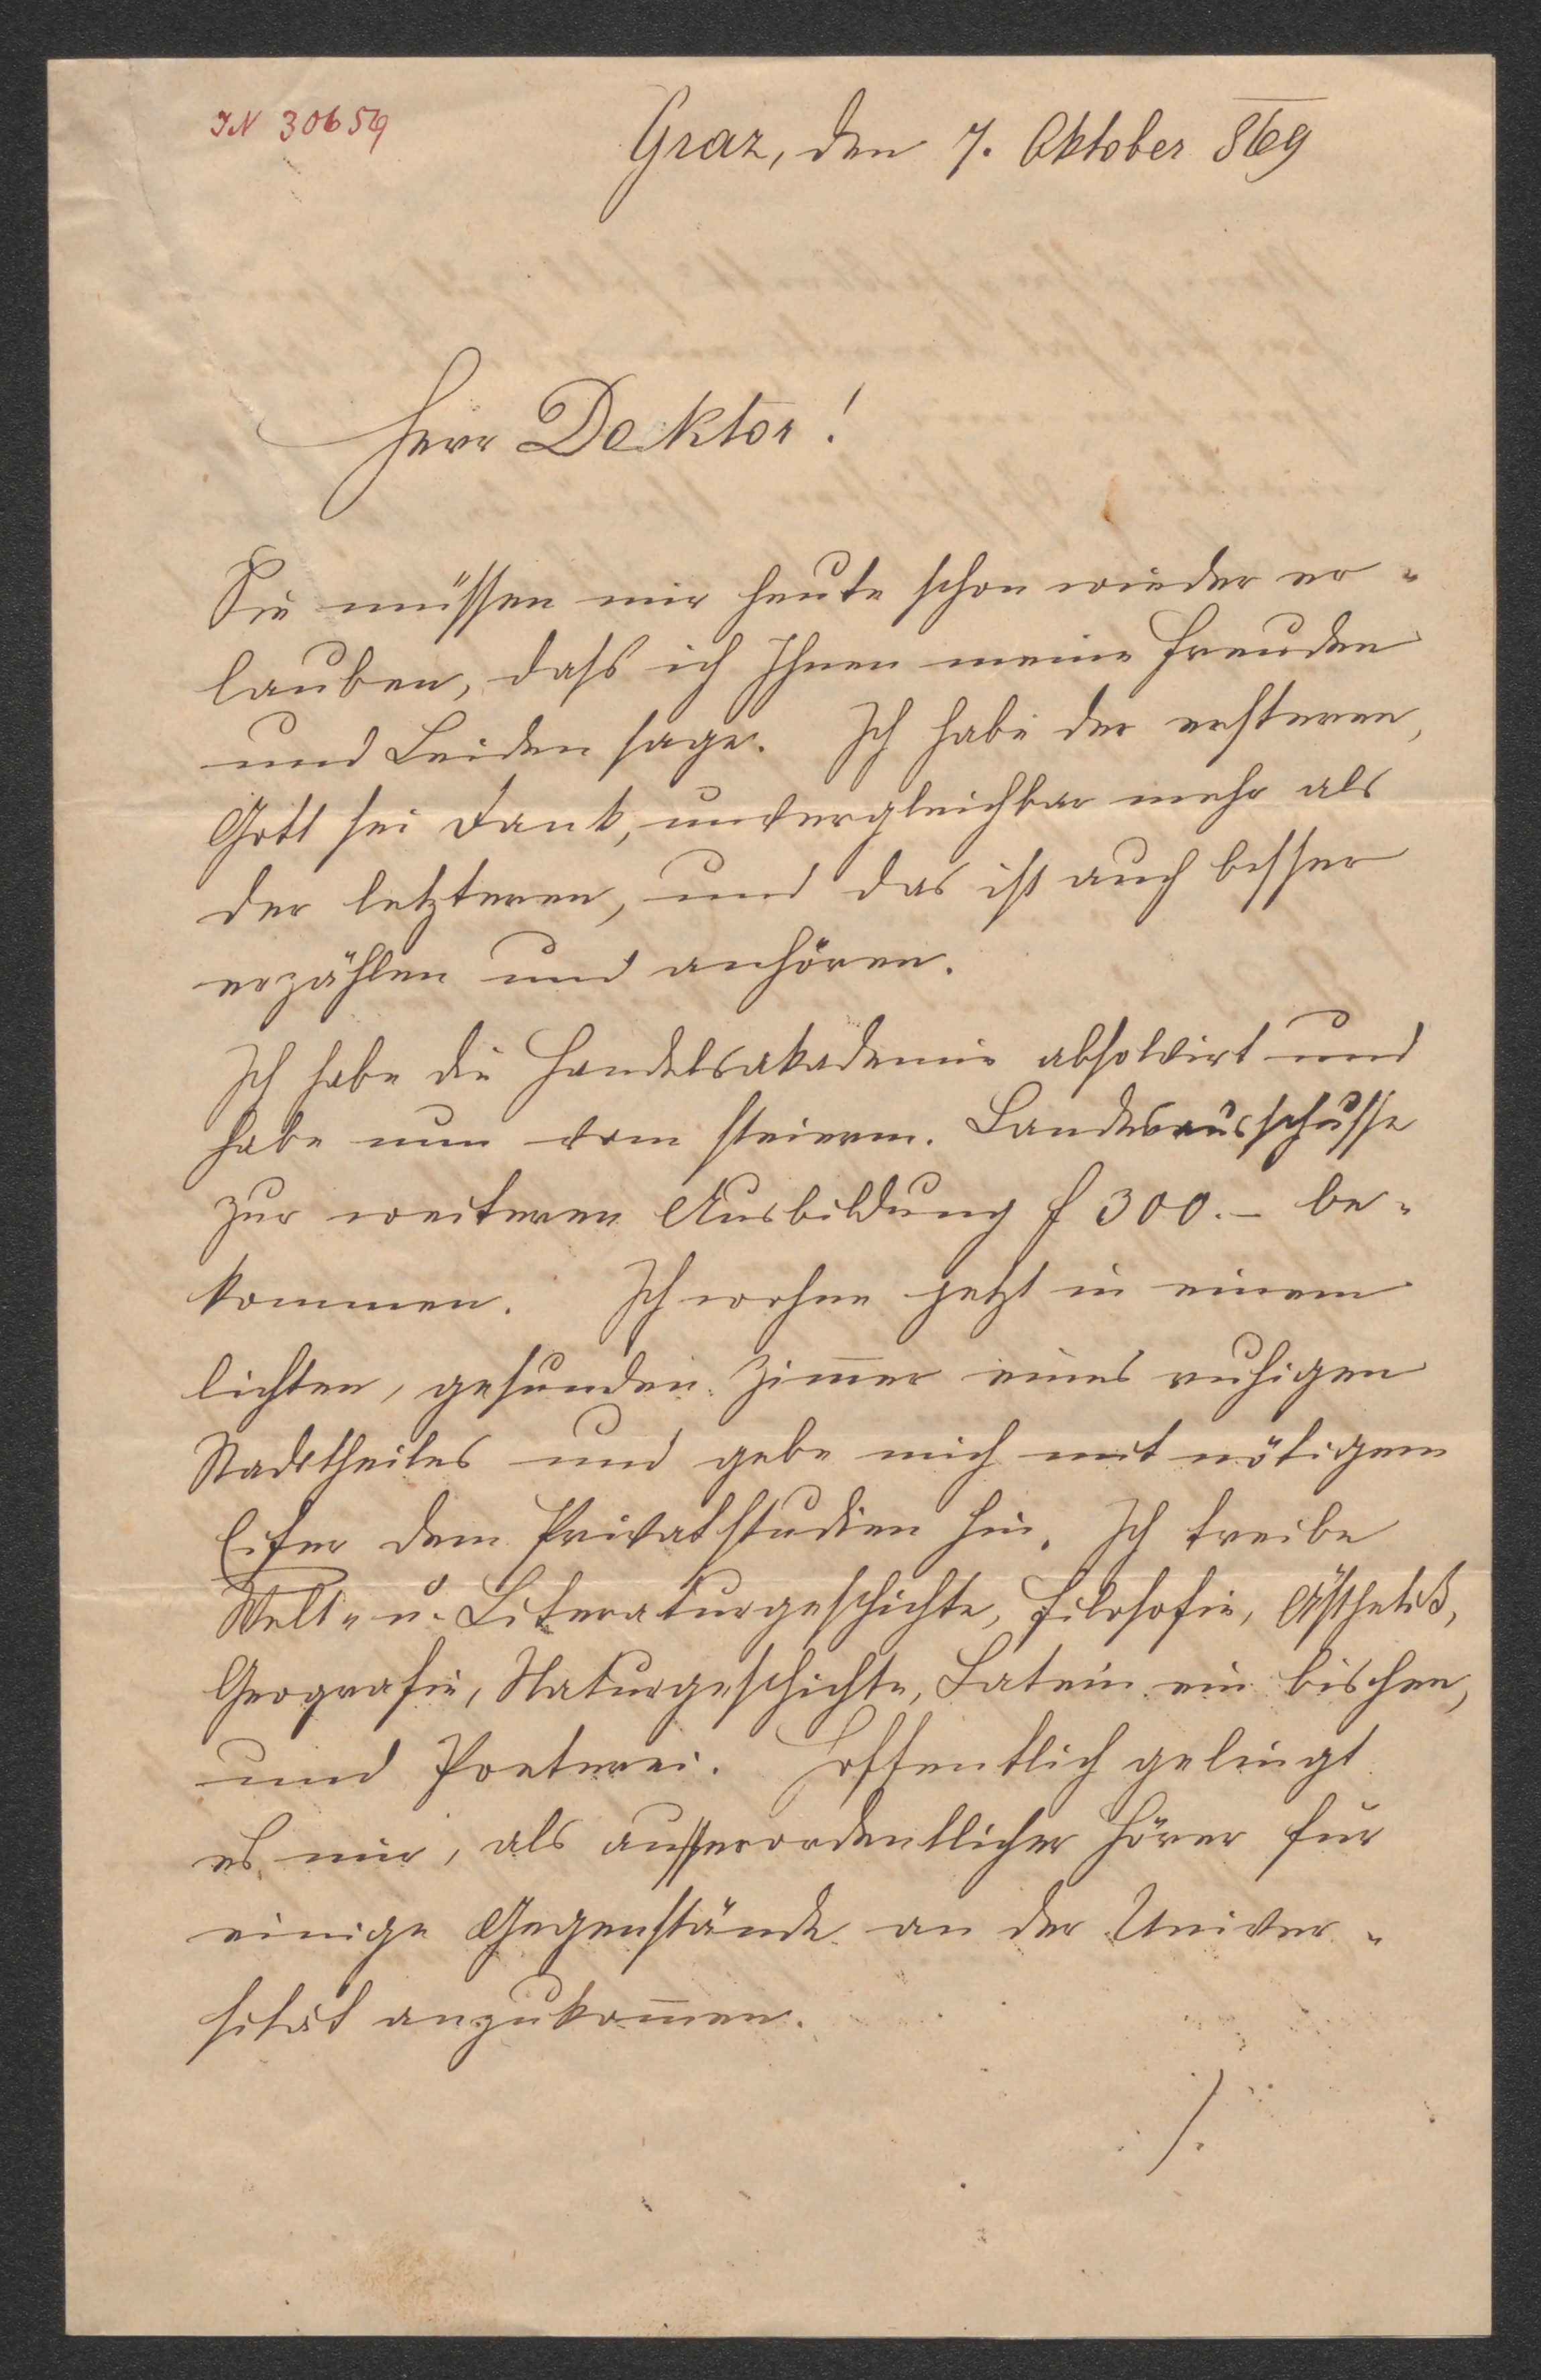 IN 30659
Graz, den 7. Oktober 869
Herr Doktor!
Sie müssen mir heute schon wieder er-
lauben, dass ich Ihnen meine Freuden
und Leiden sage. Ich habe der ersteren,
Gott sei Dank, unvergleichbar mehr als
der letzteren, und das ist auch besser
erzählen und anhören.
Ich habe die Handelsakademie absolvirt und
habe nun vom steierm. Landesausschusse
zur weiteren Ausbildung f 300.- be-
kommen. Ich wohne jetzt in einem
lichten, gesunden Zim̅er eines ruhigen
Stadttheiles und gebe mich mit nötigem
Eifer dem Privatstudien hin. Ich treibe
Welt- u. Literaturgeschichte, Filosofie, Ästhetik,
Geografie, Naturgeschichte, Latein ein bischen,
und Poeterei. Hoffentlich gelingt
es mir, als ausserordentlicher Hörer für
einige Gegenstände an der Univer-
sität anzukom̅en.
./.